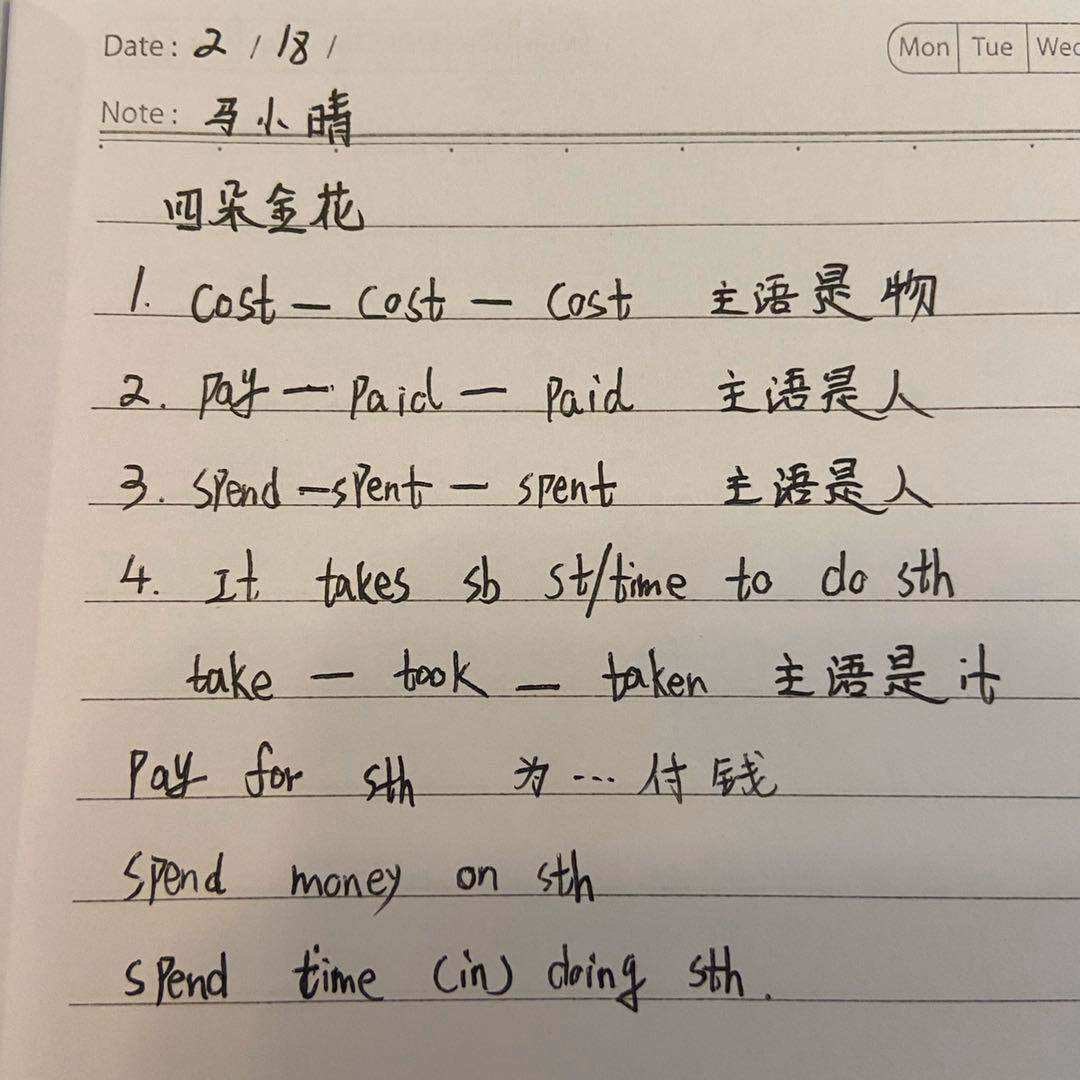 Date: 2 / 18 /
Mon Tue Wed
Note: 马小晴
四朵金花
1. cost — cost — cost 主语是物
2. pay — paid — paid 主语是人
3. spend — spent — spent 主语是人
4. It takes sb st/time to do sth
take — took — taken 主语是 it
pay for sth 为…付钱
spend money on sth
spend time (in) doing sth.